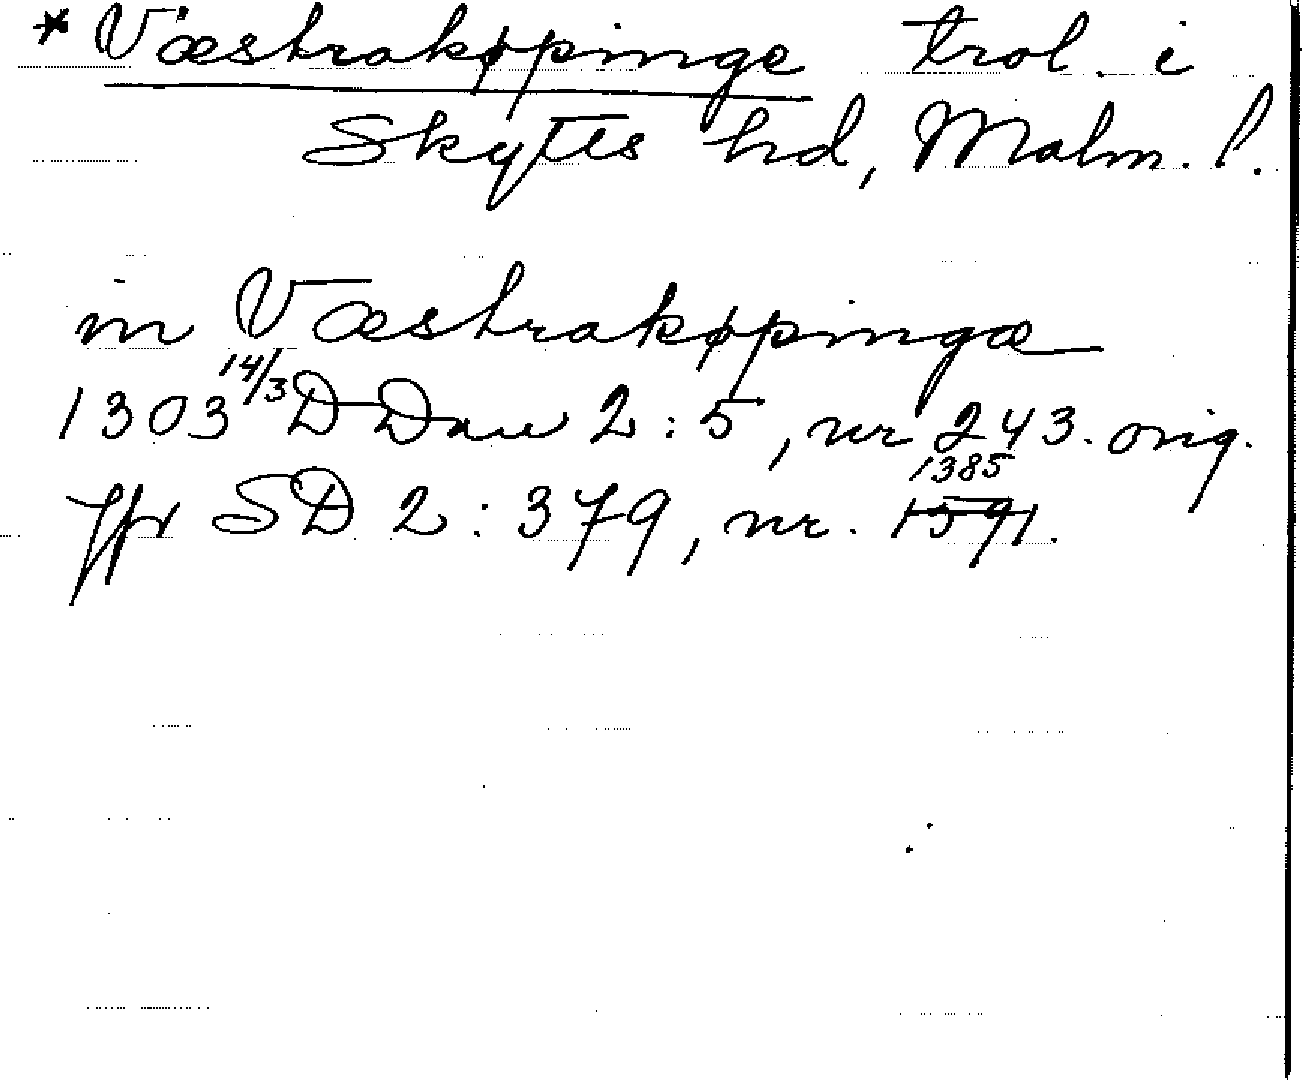 * Væstrakøpinge trol. i
Skytts hd, Malm. l.
in Væstrakøpingæ
1303 14/3 D Dan 2:5, nr 243. orig.
jfr SD 2:379, nr. 1385 1391.